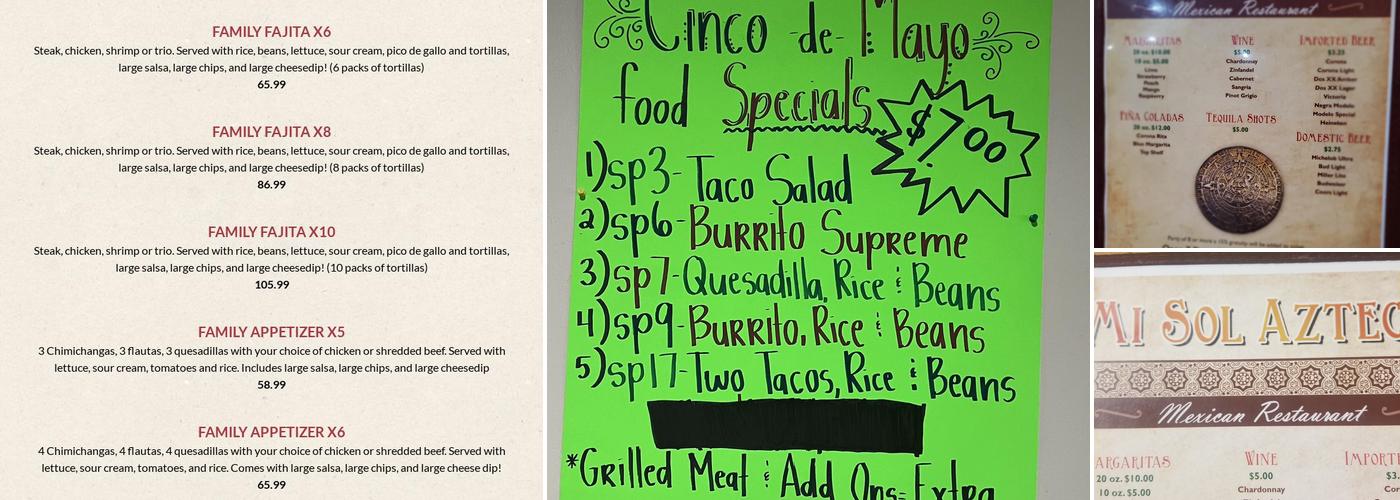 FAMILY FAJITA X6
Steak, chicken, shrimp or trio. Served with rice, beans, lettuce, sour cream, pico de gallo and tortillas,
large salsa, large chips, and large cheesedip! (6 packs of tortillas)
65.99
FAMILY FAJITA X8
Steak, chicken, shrimp or trio. Served with rice, beans, lettuce, sour cream, pico de gallo and tortillas,
large salsa, large chips, and large cheesedip! (8 packs of tortillas)
86.99
FAMILY FAJITA X10
Steak, chicken, shrimp or trio. Served with rice, beans, lettuce, sour cream, pico de gallo and tortillas,
large salsa, large chips, and large cheesedip! (10 packs of tortillas)
105.99
FAMILY APPETIZER X5
3 Chimichangas, 3 flautas, 3 quesadillas with your choice of chicken or shredded beef. Served with
lettuce, sour cream, tomatoes and rice. Includes large salsa, large chips, and large cheesedip
58.99
FAMILY APPETIZER X6
4 Chimichangas, 4 flautas, 4 quesadillas with your choice of chicken or shredded beef. Served with
lettuce, sour cream, tomatoes, and rice. Comes with large salsa, large chips, and large cheese dip!
65.99
Cinco de Mayo
food Specials
$7.00
1) sp3- Taco Salad
2) sp6- Burrito Supreme
3) sp7- Quesadilla, Rice & Beans
4) sp9- Burrito, Rice & Beans
5) sp17- Two Tacos, Rice & Beans
*Grilled Meat & Add Ons= Extra
Mexican Restaurant
MARGARITAS
20 oz. $10.00
10 oz. $5.00
Lime
Strawberry
Peach
Mango
Raspberry
PIÑA COLADAS
20 oz. $12.00
Corona Rita
Blue Margarita
Top Shelf
WINE
$5.00
Chardonnay
Zinfandel
Cabernet
Sangria
Pinot Grigio
TEQUILA SHOTS
$5.00
IMPORTED BEER
$3.25
Corona
Corona Light
Dos XX Amber
Dos XX Lager
Victoria
Negra Modelo
Modelo Special
Heineken
DOMESTIC BEER
$2.75
Michelob Ultra
Bud Light
Miller Lite
Budweiser
Coors Light
Party of 8 or more a 15% gratuity will be added
MI SOL AZTEC
Mexican Restaurant
ARGARITAS
20 oz. $10.00
10 oz. $5.00
WINE
$5.00
Chardonnay
IMPORT
$3.
Cor